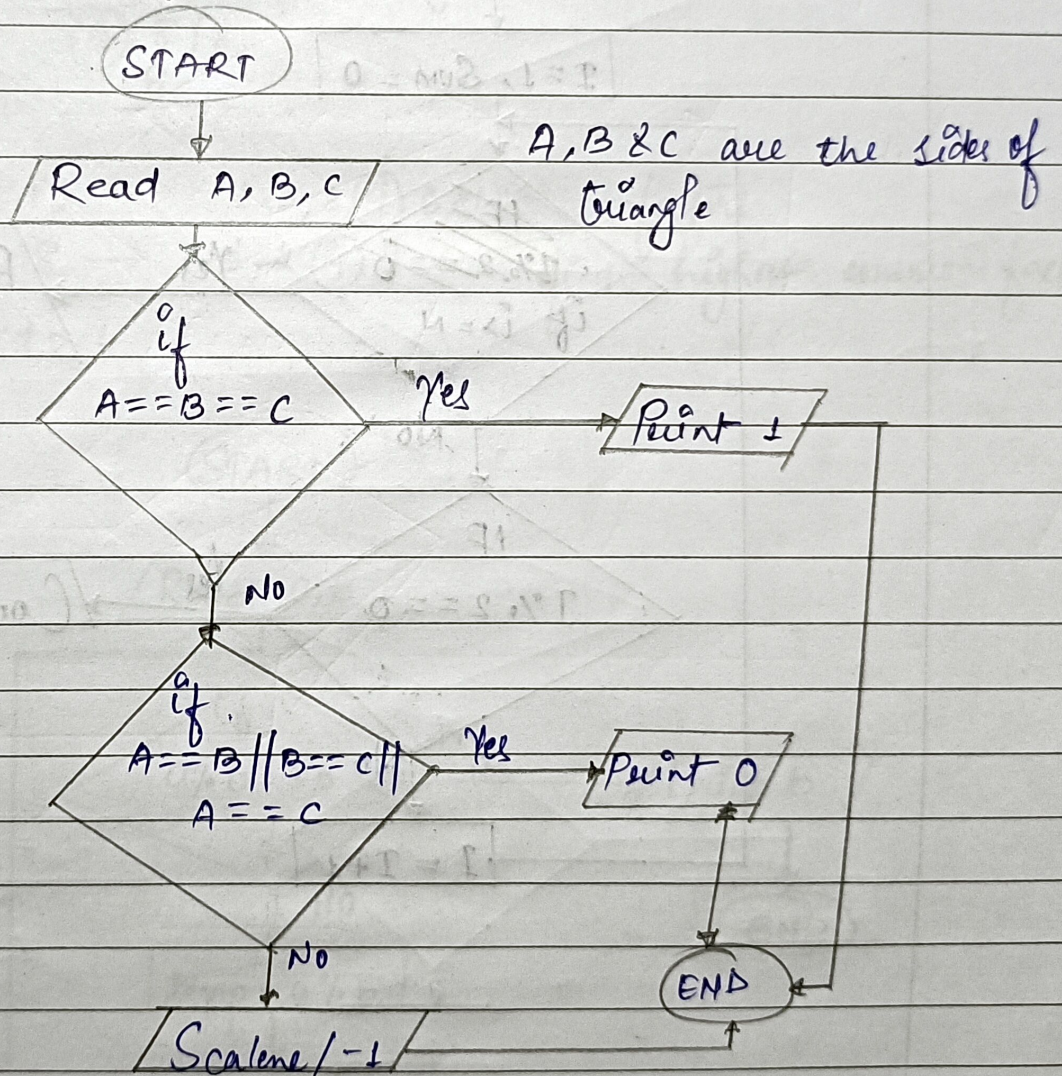 START
A, B & C are the sides of
triangle
Read A, B, C
if
A==B==C
Yes
Print 1
No
if
A==B||B==C||
A==C
Yes
Print 0
No
END
Scalene/-1